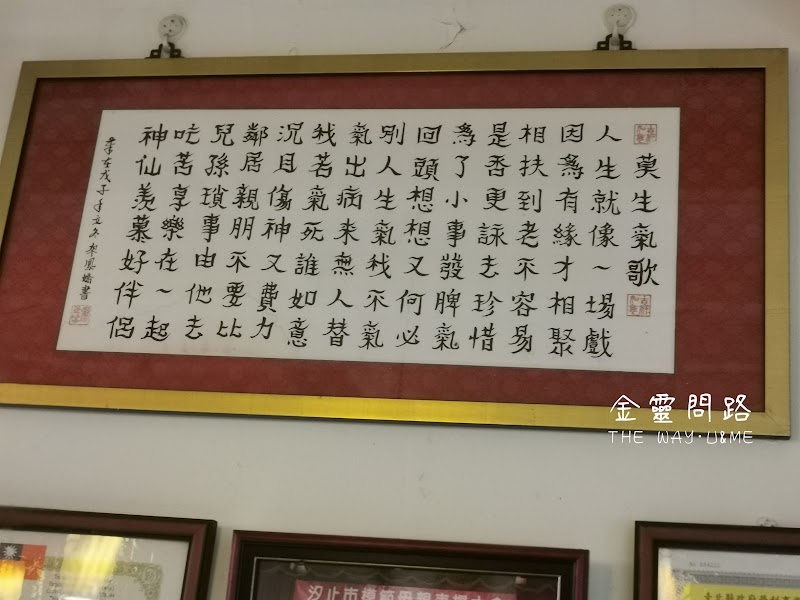 莫生氣歌
人生就像一場戲
因為有緣才相聚
相扶到老不容易
是否更該去珍惜
為了小事發脾氣
回頭想想又何必
別人生氣我不氣
氣出病來無人替
我若氣死誰如意
況且傷神又費力
鄰居親朋不要比
兒孫瑣事由他去
吃苦享樂在一起
神仙羨慕好伴侶
戊子年立冬 鳳 書
金靈問路
THE WAY·U&ME
汐止市模範母親表揚大會